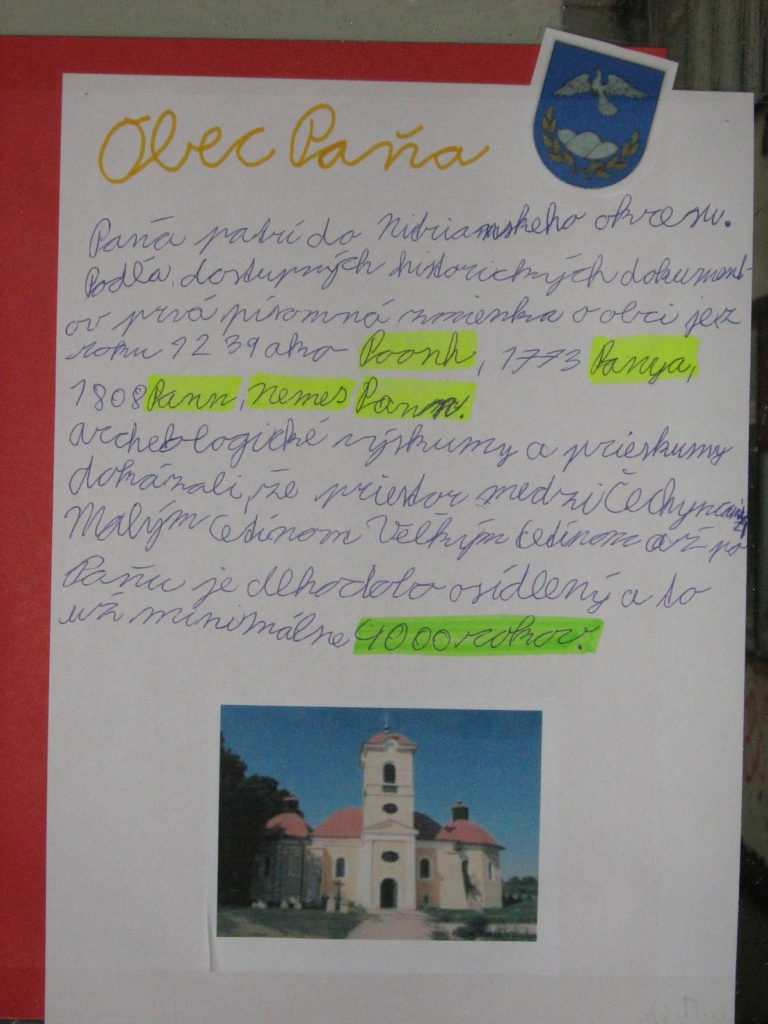 Obec Paňa
Paňa patrí do Nitrianskeho okresu.
Podľa dostupných historických dokument-
ov prvá písomná zmienka o obci je z
roku 1239 ako Poonh, 1773 Panya,
1808 Pann, Nemes Pann.
archeologické výskumy a prieskumy
dokázali, že priestor medzi Čechyncami
Malým Cetínom Veľkým Cetínom až po
Paňu je dlhodobo osídlený a to
už minimálne 4000 rokov.